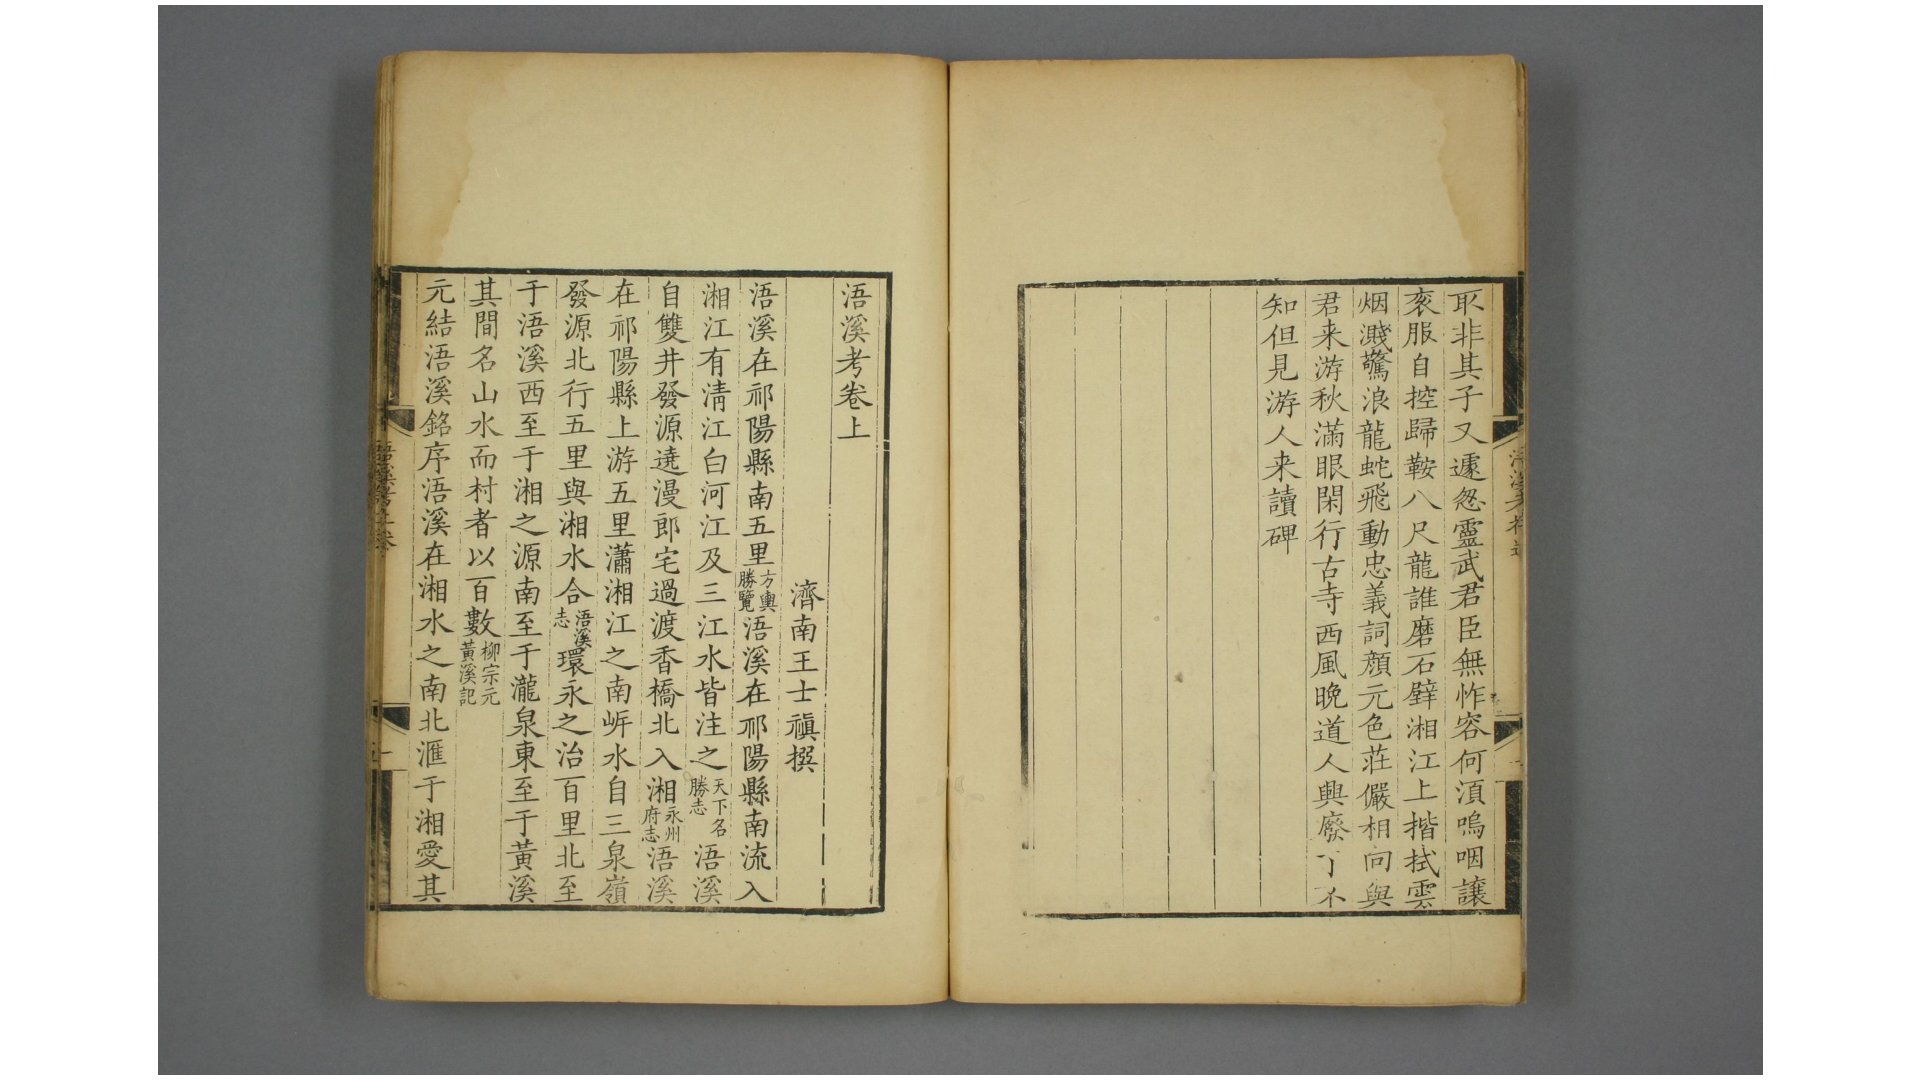 耴非其子又遽怱靈武君臣無怍容何湏嗚咽讓
衮服自控歸鞍八尺龍誰磨石壁湘江上揩拭雲
烟濺驚浪龍蛇飛動忠義詞顔元色莊儼相向與
君来游秋滿眼閑行古寺西風晚道人興廢了不
知但見游人来讀碑
浯溪考卷上
濟南王士禛撰
浯溪在祁陽縣南五里方輿勝覽浯溪在祁陽縣南流入
湘江有清江白河江及三江水皆注之天下名勝志浯溪
自雙井發源遶漫郎宅過渡香橋北入湘永州府志浯溪
在祁陽縣上游五里瀟湘江之南岍水自三泉嶺
發源北行五里與湘水合浯溪志環永之治百里北至
于浯溪西至于湘之源南至于瀧泉東至于黃溪
其間名山水而村者以百數柳宗元黃溪記
元結浯溪銘序浯溪在湘水之南北滙于湘愛其